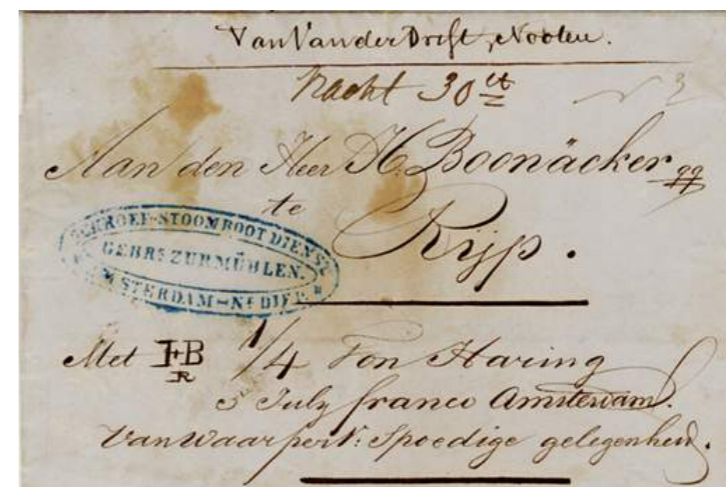 Van Van der Drift, Noolen.
Vracht 30 ct
N 3
Aan den Heer H. Boonäcker
te
Rijp.
SCHROEF-STOOMBOOT DIENST
GEBRS ZURMÜHLEN.
AMSTERDAM-NEDIEP
Met HB 1/4 Ton Haring
R
3 July franco Amsterdam.
Van waar per N: Spoedige gelegenheid.